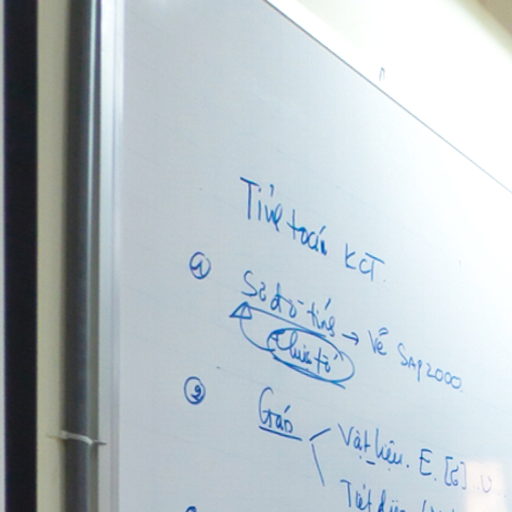 Tính toán KCT.
① Sơ đồ tính → Vẽ SAP2000
thực tế
② Gán Vật liệu. E. [σ]
Tiết diện